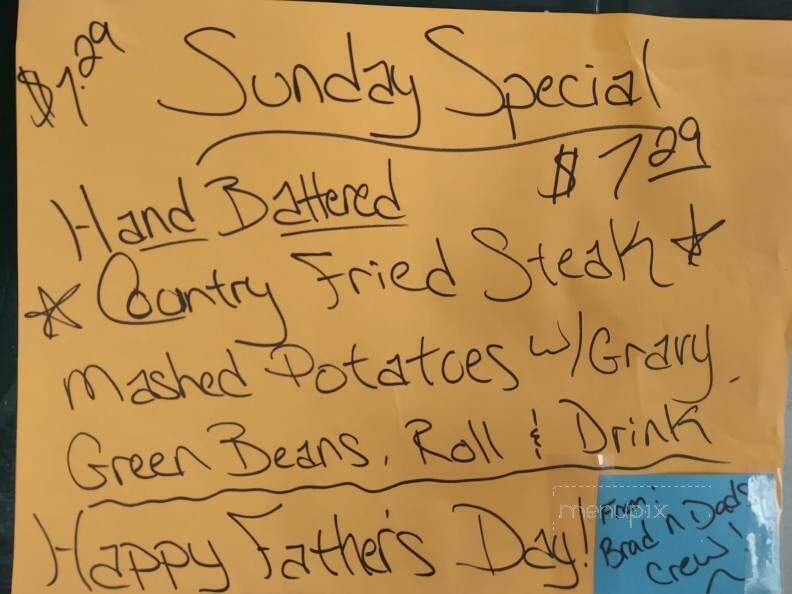 $7.29 Sunday Special
Hand Battered $7.29
Country Fried Steak
Mashed Potatoes w/Gravy
Green Beans, Roll & Drink
Happy Father's Day!
From:
Brad n Dads
Crew!
menupix